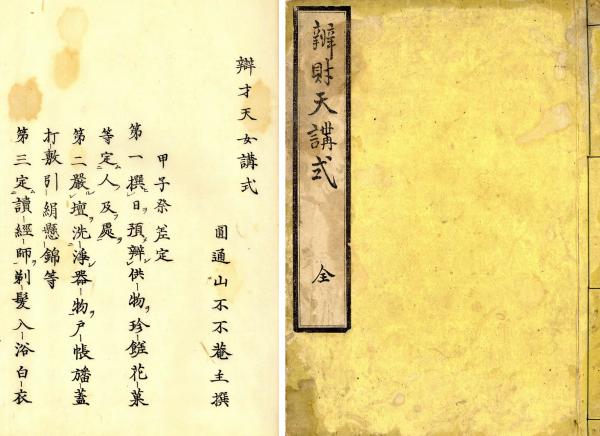 辨財天講式
全
辯才天女講式
圓通山不不菴主撰
甲子祭蓋定
第一撰日預辨供物珍饈花菓
等定人及處
第二嚴壇洗淨器物戸帳旛蓋
打敷引絹懸錦等
第三定讀經師剃髮入浴白衣